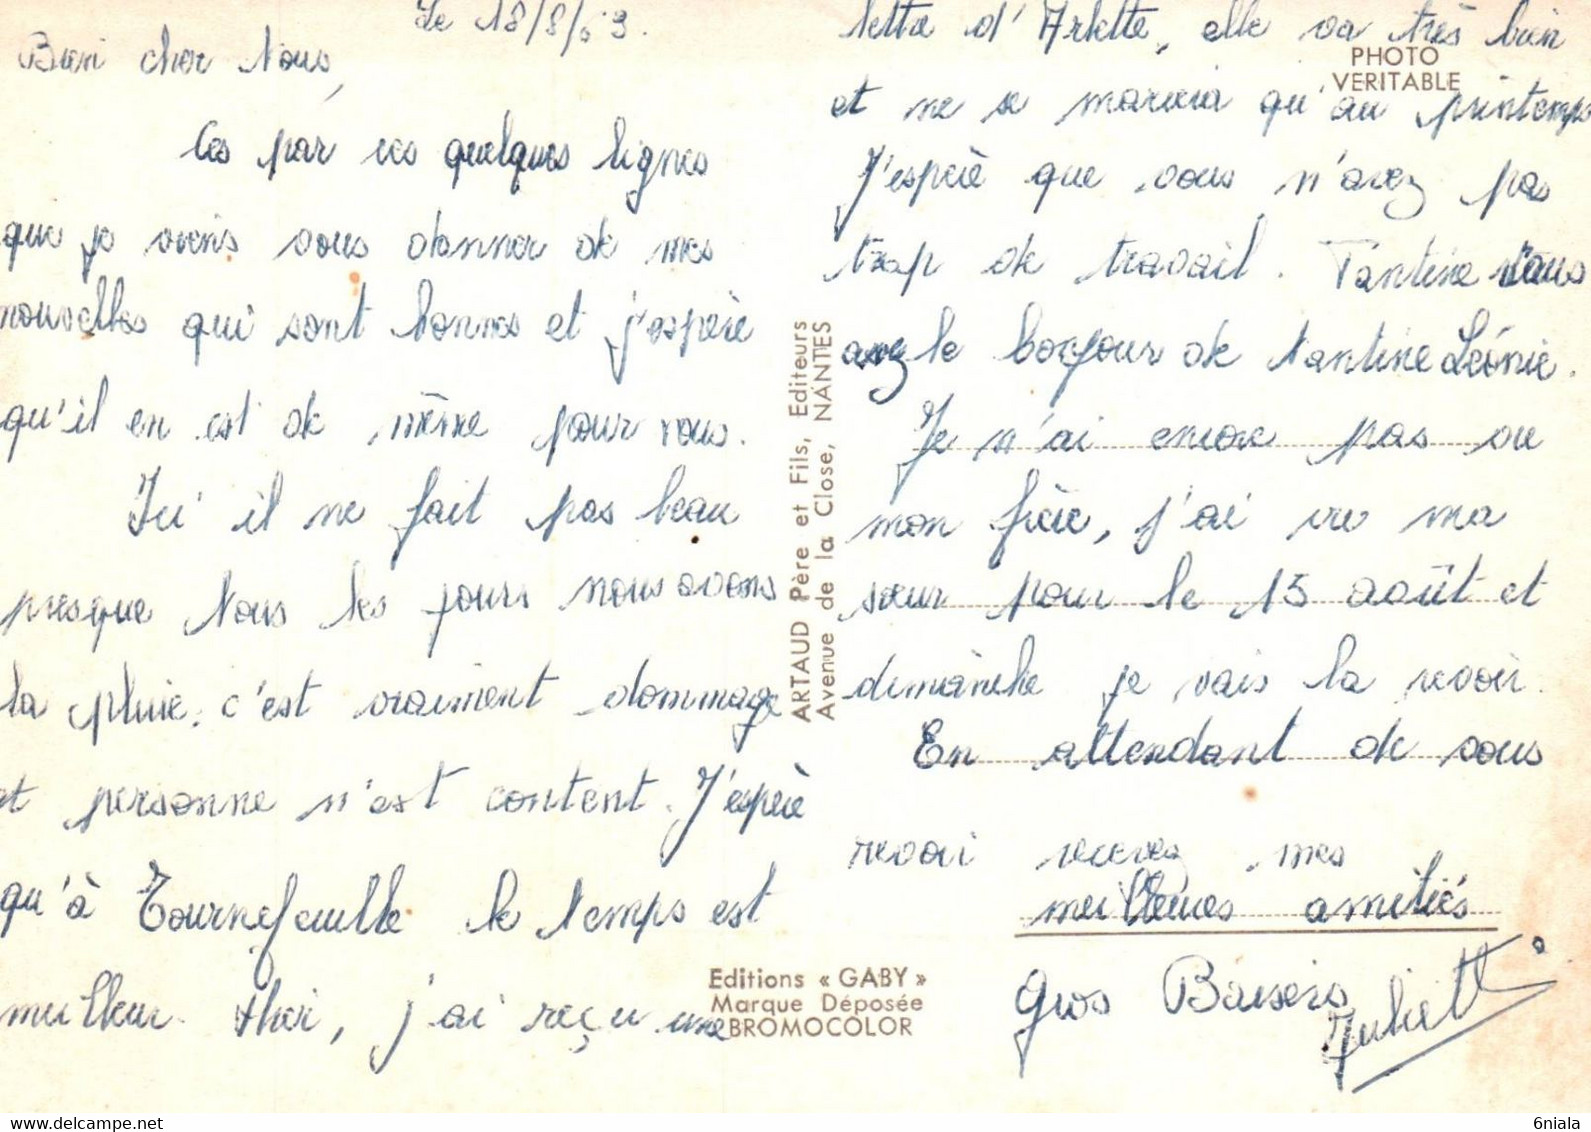 Le 18/8/63.
Bien cher Tous,
Ces par ces quelques lignes
que je viens vous donner de mes
nouvelles qui sont bonnes et j'espère
qu'il en est de même pour vous.
Ici il ne fait pas beau
presque tous les jours nous avons
la pluie, c'est vraiment dommage
et personne n'est content. J'espère
qu'à Tournefeuille le temps est
meilleur. Hier, j'ai reçu une
lettre d'Arlette, elle va très bien
et ne se mariera qu'au printemps
J'espère que vous n'avez pas
trop de travail. Tantine vous
avez le bonjour de tantine Léonie.
Je n'ai encore pas vu
mon frère, j'ai vu ma
sœur pour le 15 août et
dimanche je vais la revoir.
En attendant de vous
revoir recevez mes
meilleures amitiés
Gros Baisers
Juliette
PHOTO
VERITABLE
ARTAUD Père et Fils, Editeurs
Avenue de la Close, NANTES
Editions « GABY »
Marque Déposée
BROMOCOLOR
delcampe.net
6niala